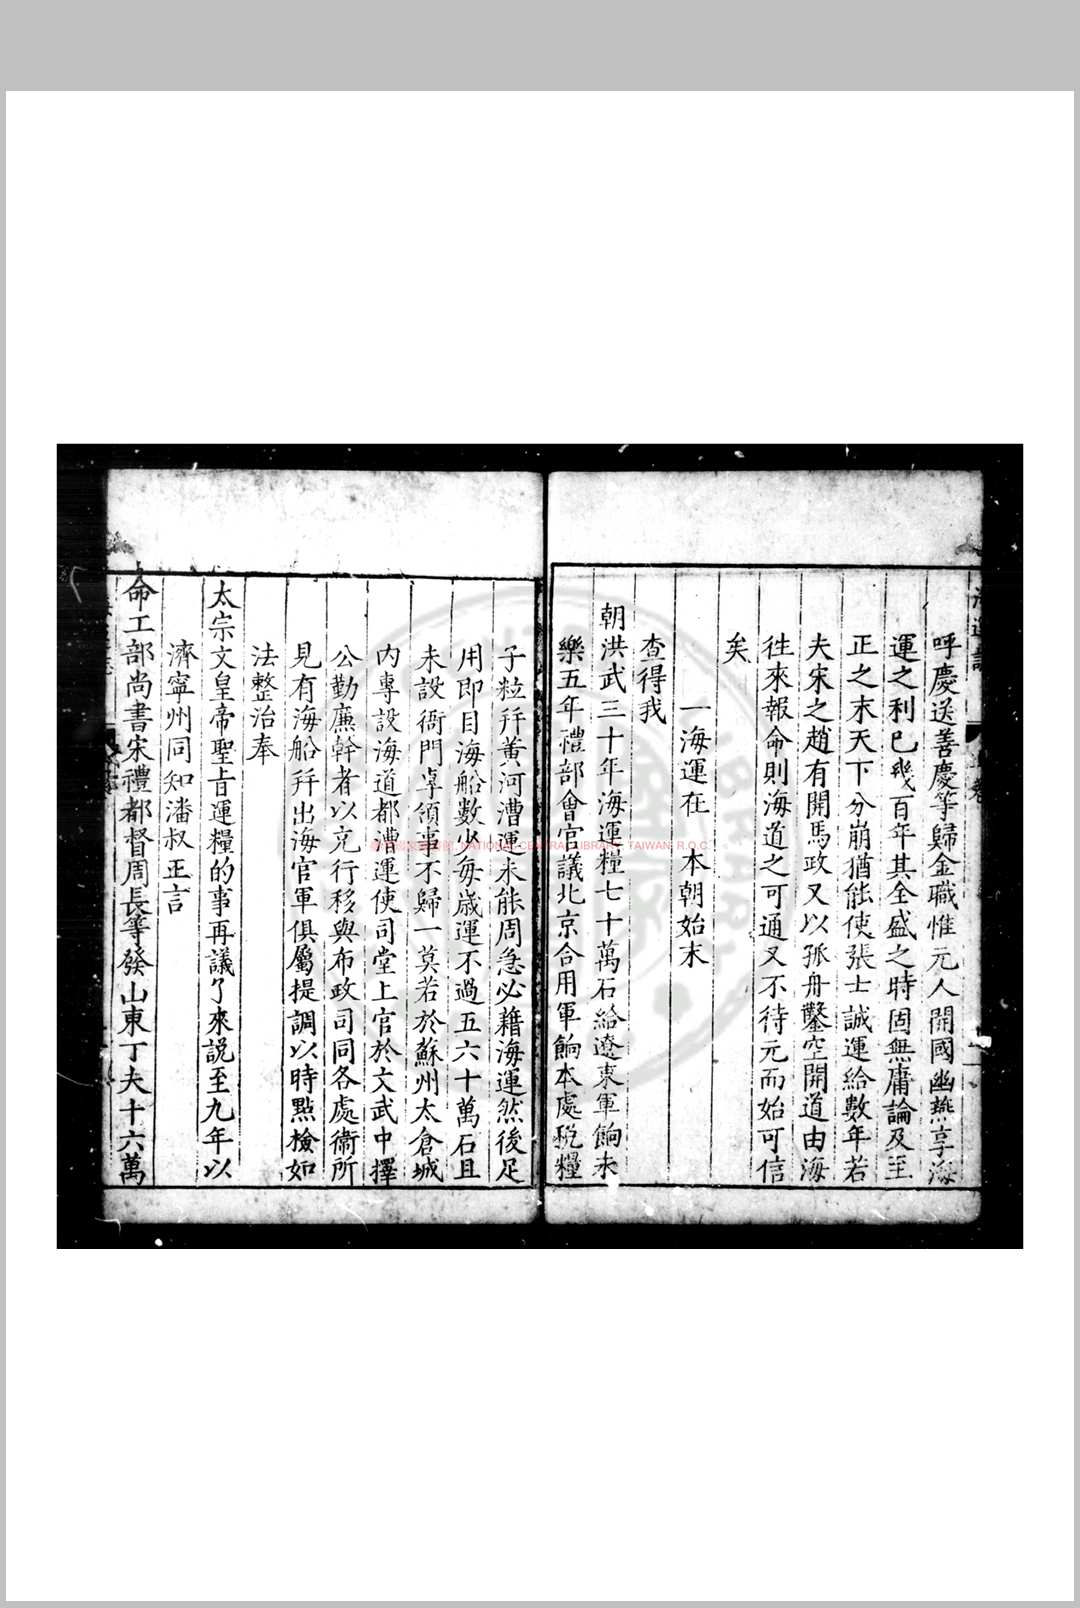 呼慶送善慶等歸金職惟元人開國幽燕享海
運之利已幾百年其全盛之時固無庸論及至
正之末天下分崩猶能使張士誠運給數年若
夫宋之趙有開馬政又以孤舟鑿空開道由海
徃來報命則海道之可通又不待元而始可信
矣
一海運在 本朝始末
查得我
朝洪武三十年海運糧七十萬石給遼東軍餉未
樂五年禮部會官議北京合用軍餉本處稅糧
子粒幷黃河漕運未能周急必藉海運然後足
用即目海船數少每歲運不過五六十萬石且
未設衙門卓領事不歸一莫若於蘇州太倉城
內專設海道都漕運使司堂上官於文武中擇
公勤廉幹者以充行移與布政司同各處衞所
見有海船幷出海官軍俱屬提調以時點檢如
法整治奉
太宗文皇帝聖旨運糧的事再議了來說至九年以
濟寧州同知潘叔正言
命工部尚書宋禮都督周長等發山東丁夫十六萬
NATIONAL CENTRAL LIBRARY, TAIWAN, R.O.C